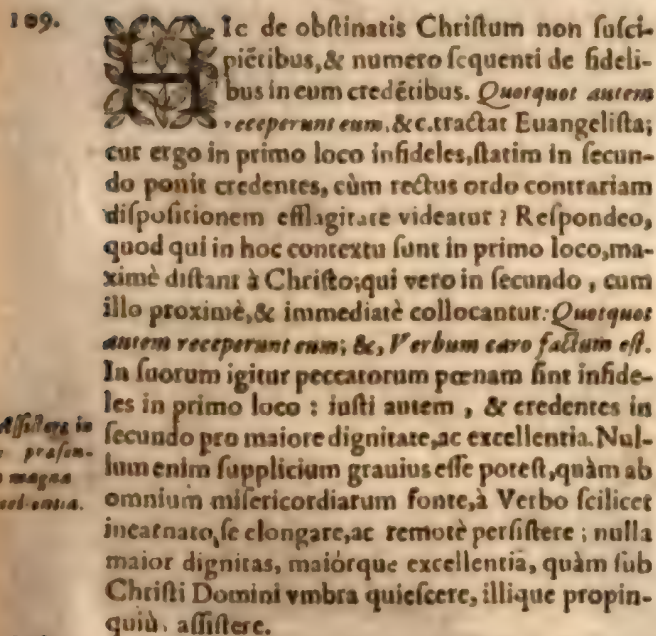 109.
HIc de obſtinatis Chriſtum non ſuſci-
piẽtibus,& numero ſequenti de fideli-
bus in eum credẽtibus. Quotquot autem
receperunt eum, &c. tractat Euangeliſta;
cur ergo in primo loco infideles, ſtatim in ſecun-
do ponit credentes, cùm rectus ordo contrariam
diſpoſitionem efflagitare videatur? Reſpondeo,
quod qui in hoc contextu ſunt in primo loco, ma-
ximè diſtant à Chriſto; qui vero in ſecundo, cum
illo proximè, & immediatè collocantur: Quotquot
autem receperunt eum; &, Verbum caro factum eſt.
In ſuorum igitur peccatorum pœnam ſint infide-
les in primo loco: iuſti autem, & credentes in
ſecundo pro maiore dignitate, ac excellentia. Nul-
lum enim ſupplicium grauius eſſe poteſt, quàm ab
omnium miſericordiarum fonte, à Verbo ſcilicet
incarnato, ſe elongare, ac remotè perſiſtere; nulla
maior dignitas, maiórque excellentia, quàm ſub
Chriſti Domini vmbra quieſcere, illique propin-
quiùs aſſiſtere.
Aſſiſtere in
præſen-
magna